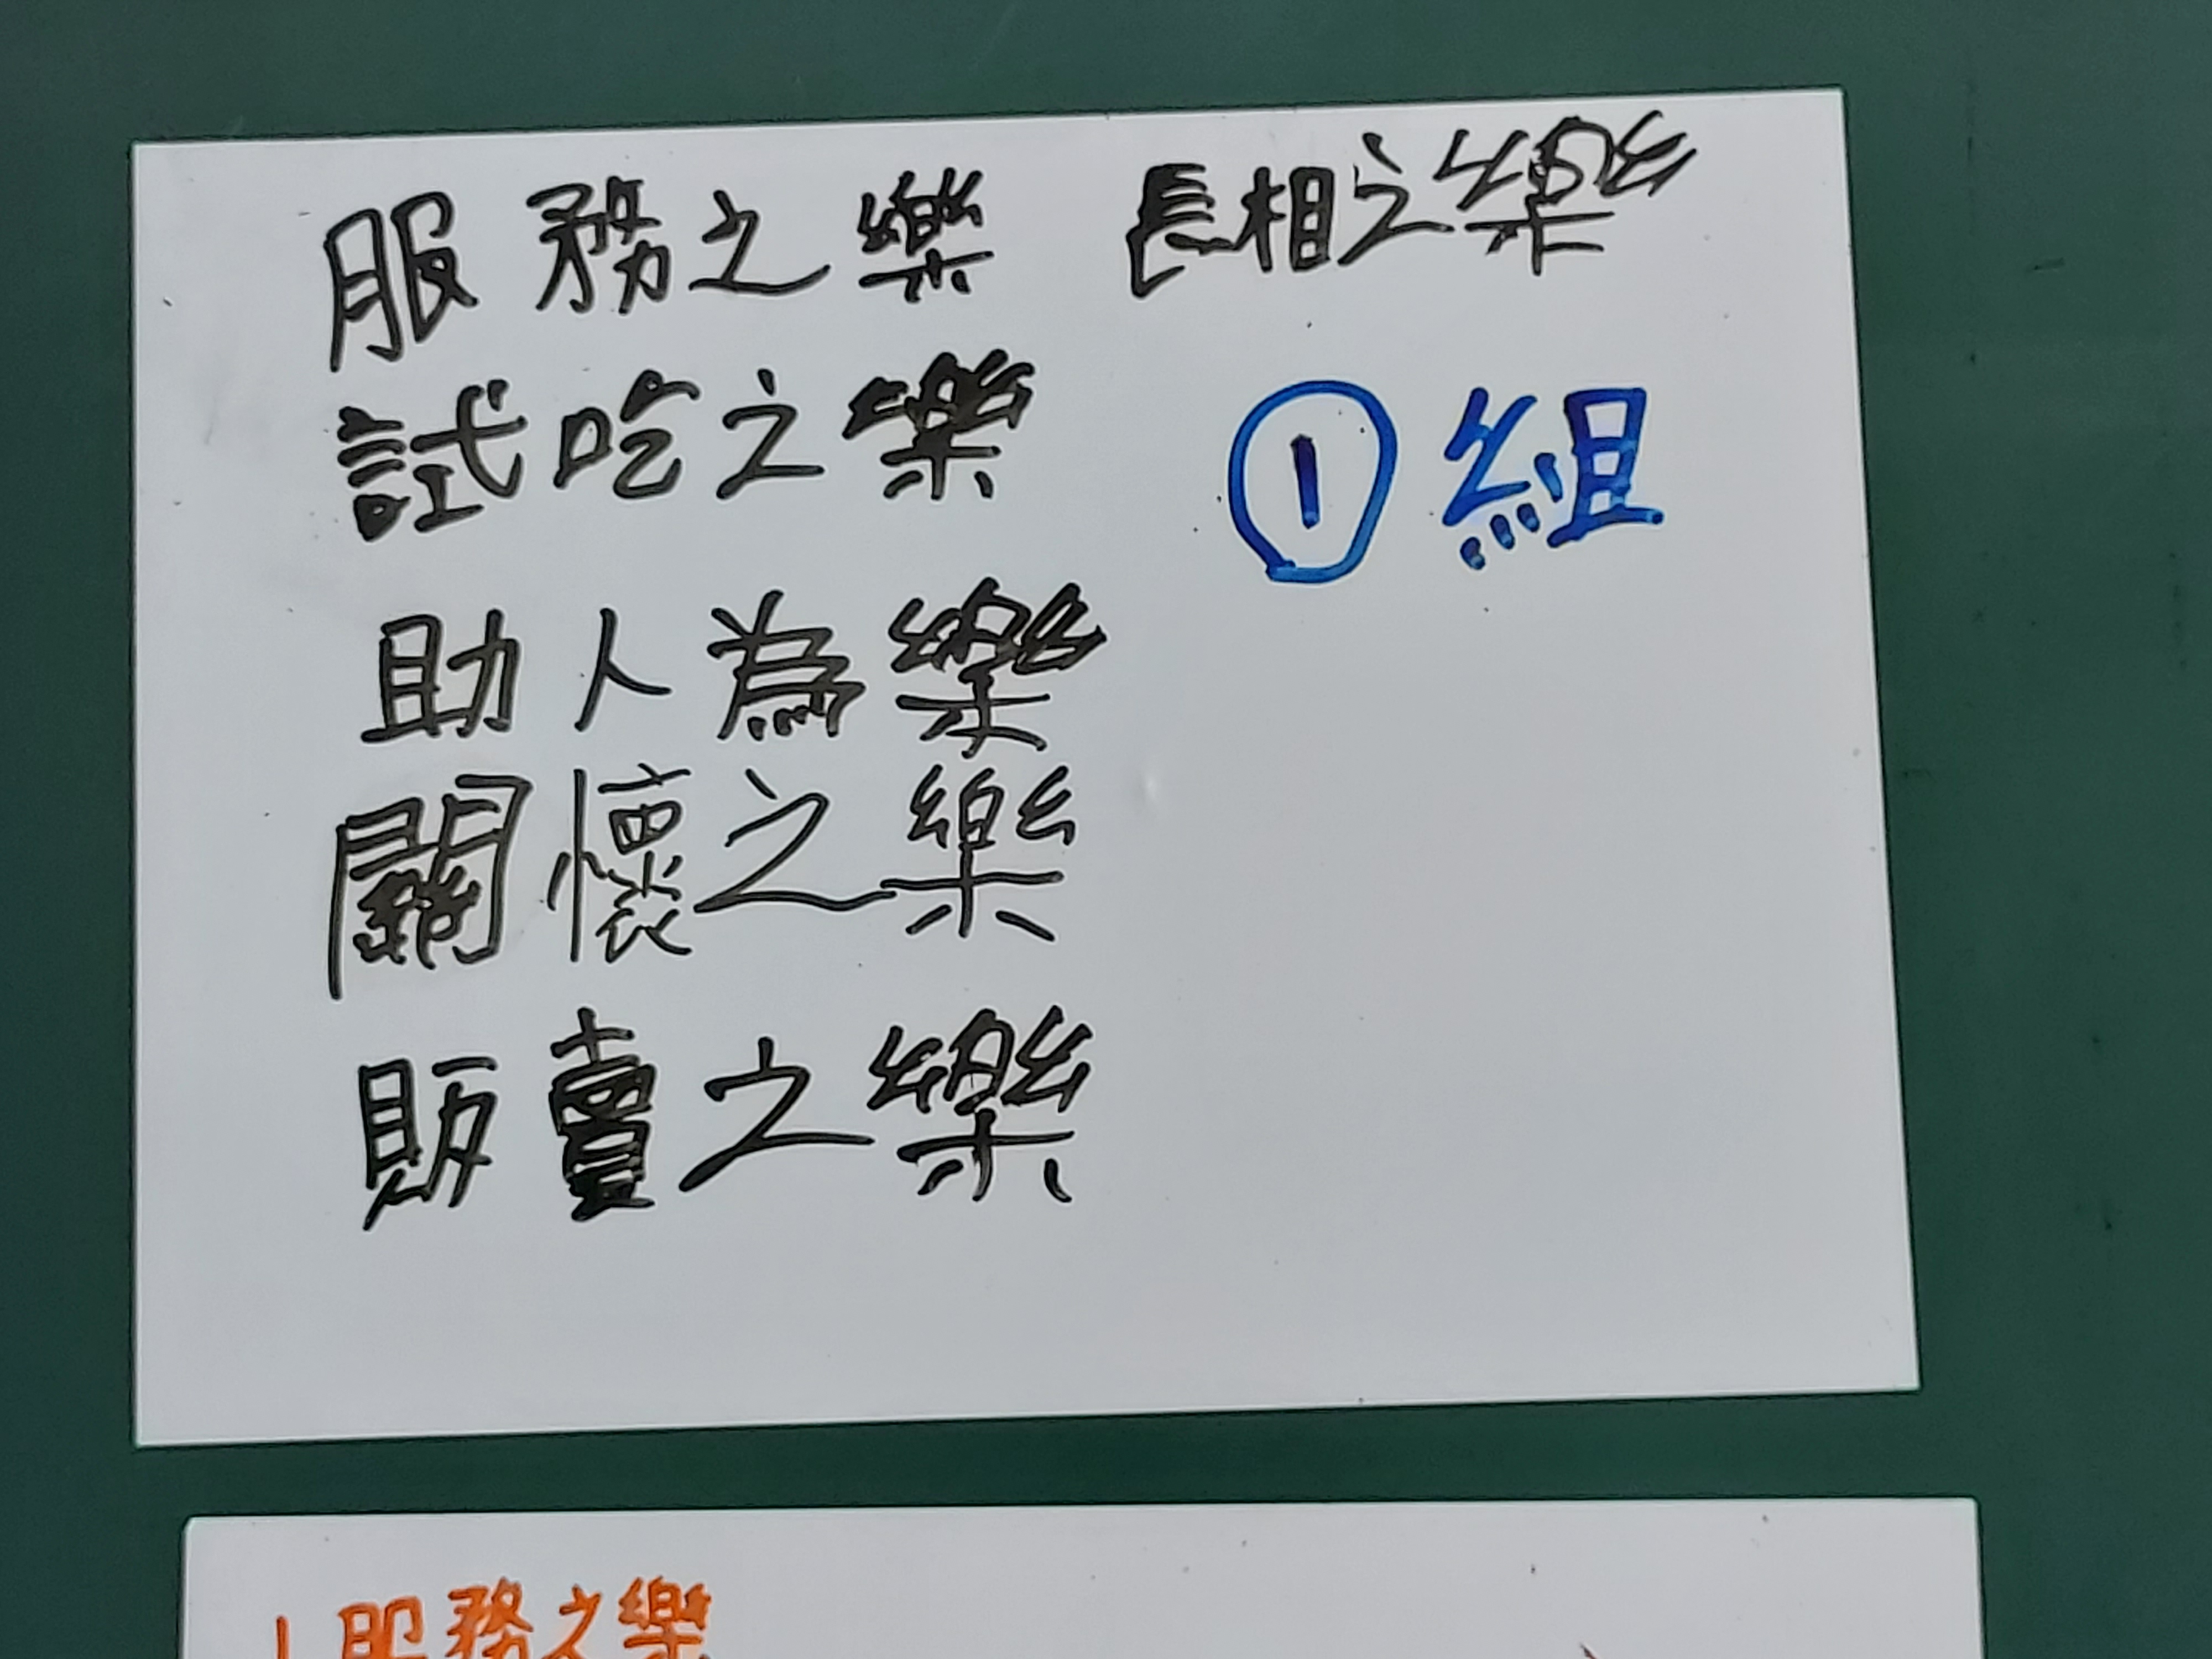 服務之樂 長相之樂
試吃之樂 ①組
助人為樂
關懷之樂
販賣之樂
1 服務之樂